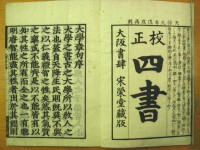 校正
四書
大阪書肆 宋榮堂藏版
大學章句序
大學之書古之大學所以教人之
法也蓋自天降生民則既莫不與
之以仁義禮智之性矣然其氣質
之稟或不能齊是以不能皆有以
知其性之所有而全之也一有聰
明睿智能盡其性者出於其間則